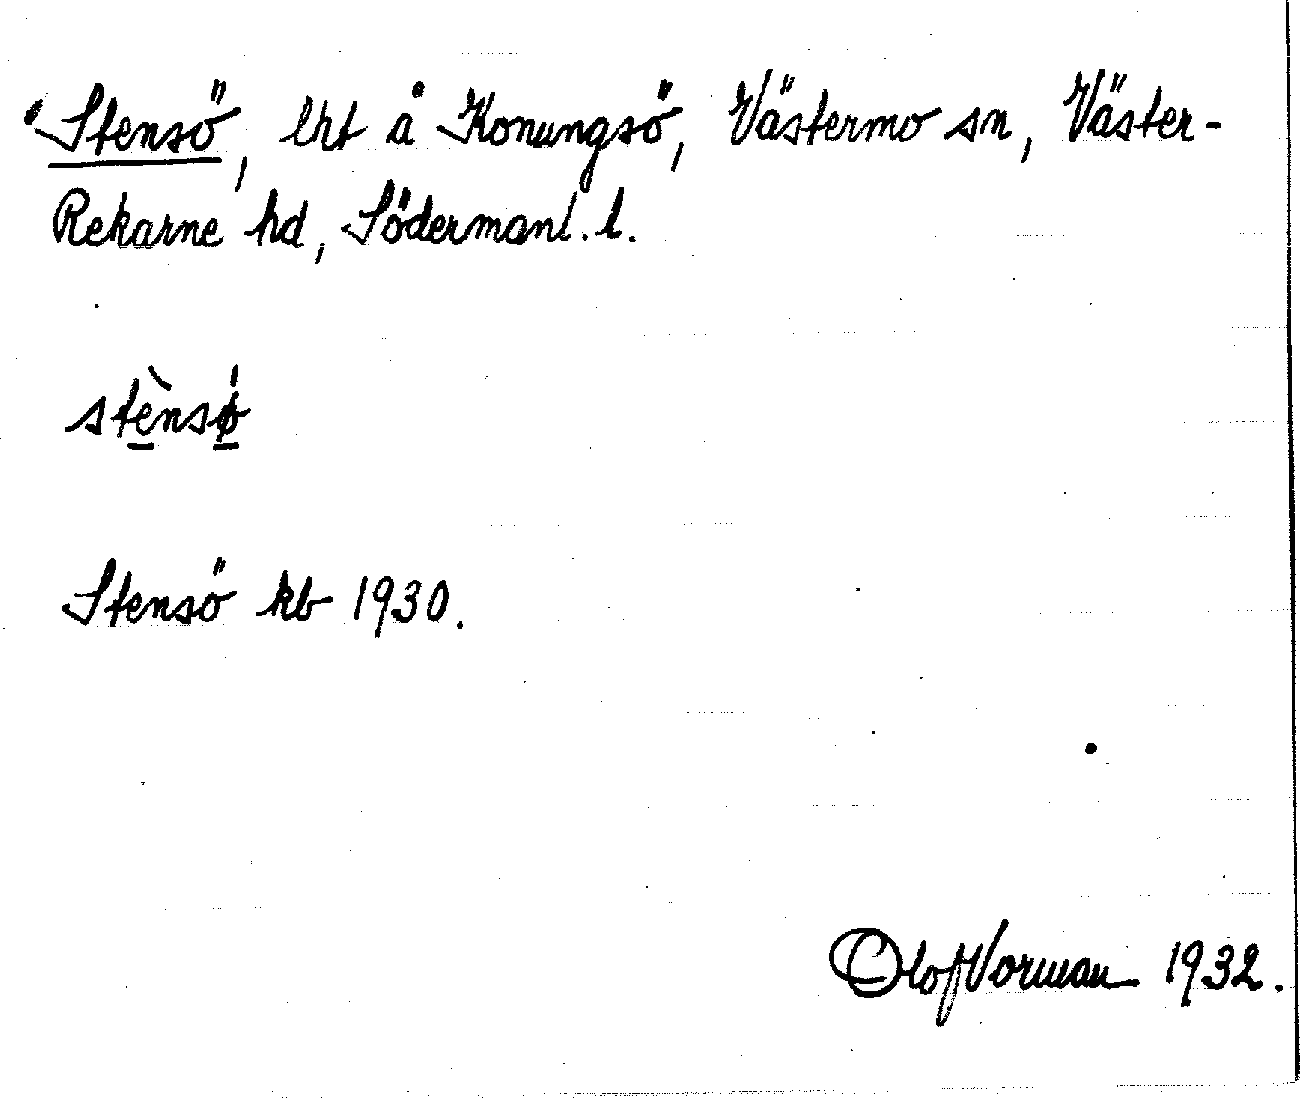 Stensö, lht å Konungsö, Västermo sn, Väster-
Rekarne hd, Södermanl. l.
stènsø
Stensö kb 1930.
Olof Vorman 1932.